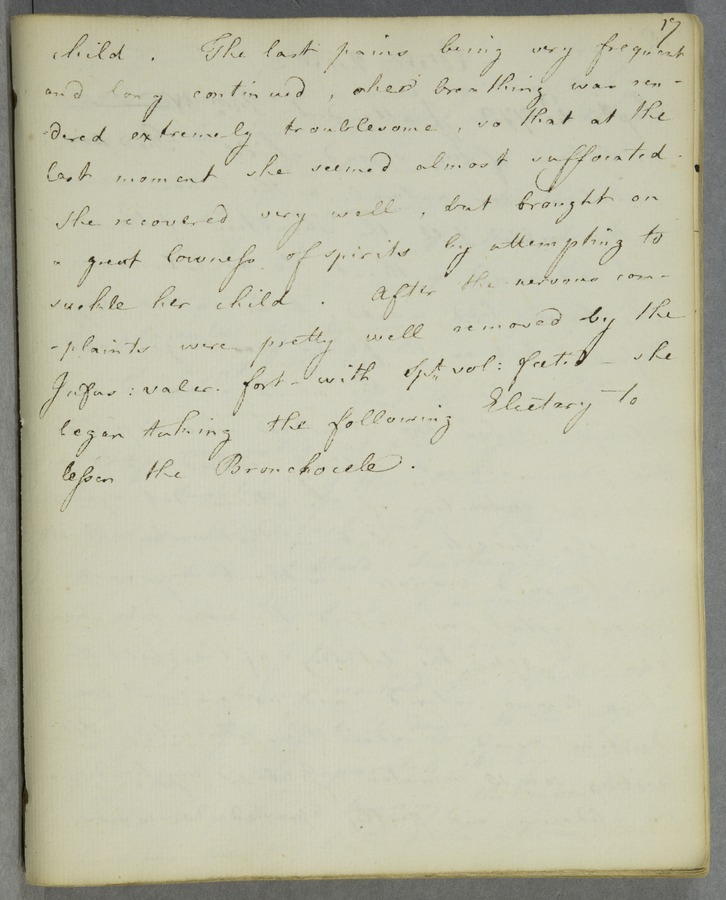 17
child . The last pains being very frequent
and long continued , her breathing was ren-
-dered extremely troublesome , so that at the
last moment she seemed almost suffocated .
She recovered very well , but brought on
a great lowness of spirits by attempting to
suckle her child . After the nervous com-
-plaints were pretty well removed by the
Infus : valer. fort - with Spt. vol : foetid - she
began taking the following Electary to
lessen the Bronchocele .